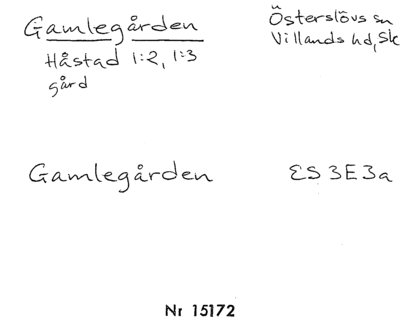 Gamlegården
Österslövs sn
Håstad 1:2, 1:3
Villands hd, Sk
gård
Gamlegården
ES 3E3a
Nr 15172